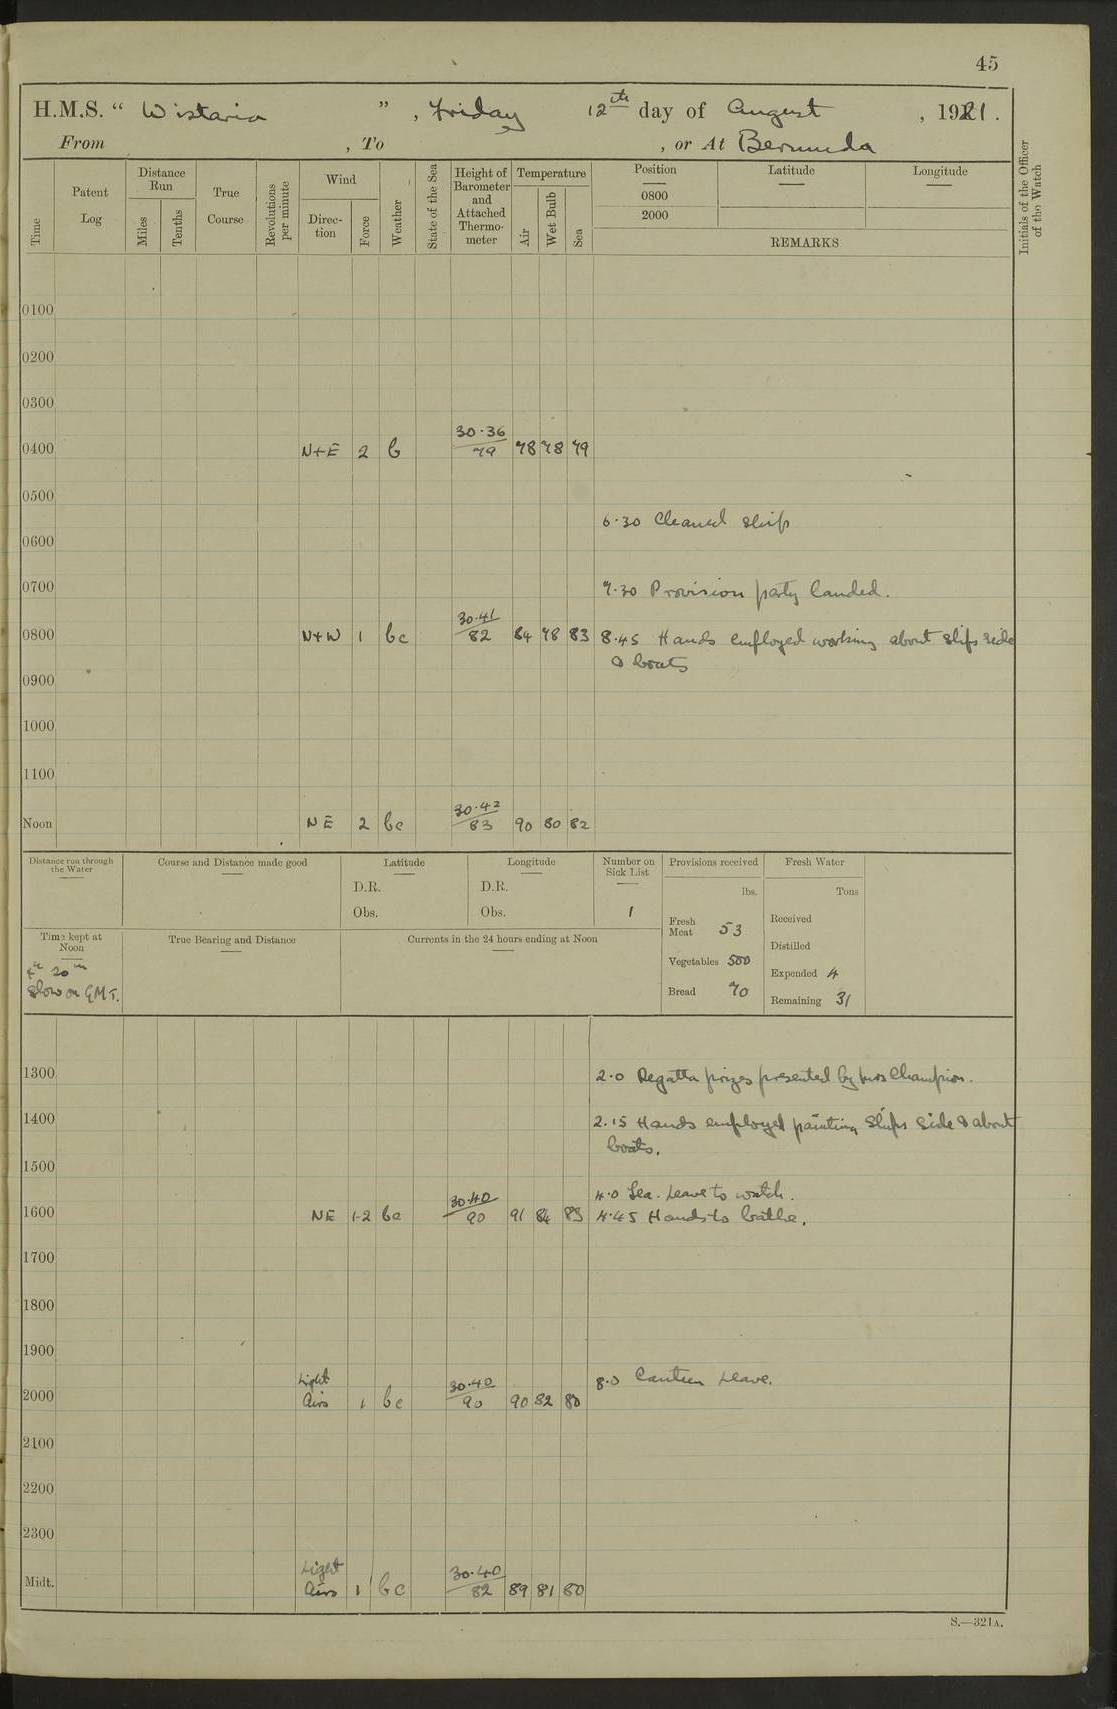 45
H.M.S. “ Wistaria ” , Friday 12th day of August , 1921.
From , To , or At Bermuda
Time
Patent Log
Distance Run
Miles
Tenths
True Course
Revolutions per minute
Wind
Direction
Force
Weather
State of the Sea
Height of Barometer and Attached Thermometer
Temperature
Air
Wet Bulb
Sea
Position
0800
2000
Latitude
Longitude
REMARKS
Initials of the Officer of the Watch
0100
0200
0300
0400 N+E 2 b 30.36/79 78 78 79
0500
6.30 Cleaned ship
0600
0700 7.30 Provision party landed.
0800 N+W 1 bc 30.41/82 84 78 83 8.45 Hands employed working about ships side
& boats
0900
1000
1100
Noon NE 2 bc 30.42/83 90 80 82
Distance run through the Water
Course and Distance made good
Latitude
D.R.
Obs.
Longitude
D.R.
Obs.
Number on Sick List
1
Provisions received
lbs.
Fresh Meat 53
Vegetables 500
Bread 70
Fresh Water
Tons
Received
Distilled
Expended 4
Remaining 31
Time kept at Noon
4h 20m
Slow on G.M.T.
True Bearing and Distance
Currents in the 24 hours ending at Noon
1300 2.0 Regatta prizes presented by Mrs Champion.
1400 2.15 Hands employed painting Ships side & about
boats.
1500
4.0 Leave to watch.
1600 NE 1-2 bc 30.40/90 91 84 83 4.45 Hands to bathe.
1700
1800
1900
2000 Light Airs 1 bc 30.40/90 90 82 80 8.0 Canteen Leave.
2100
2200
2300
Midt. Light Airs 1 bc 30.40/82 89 81 80
S.—321A.